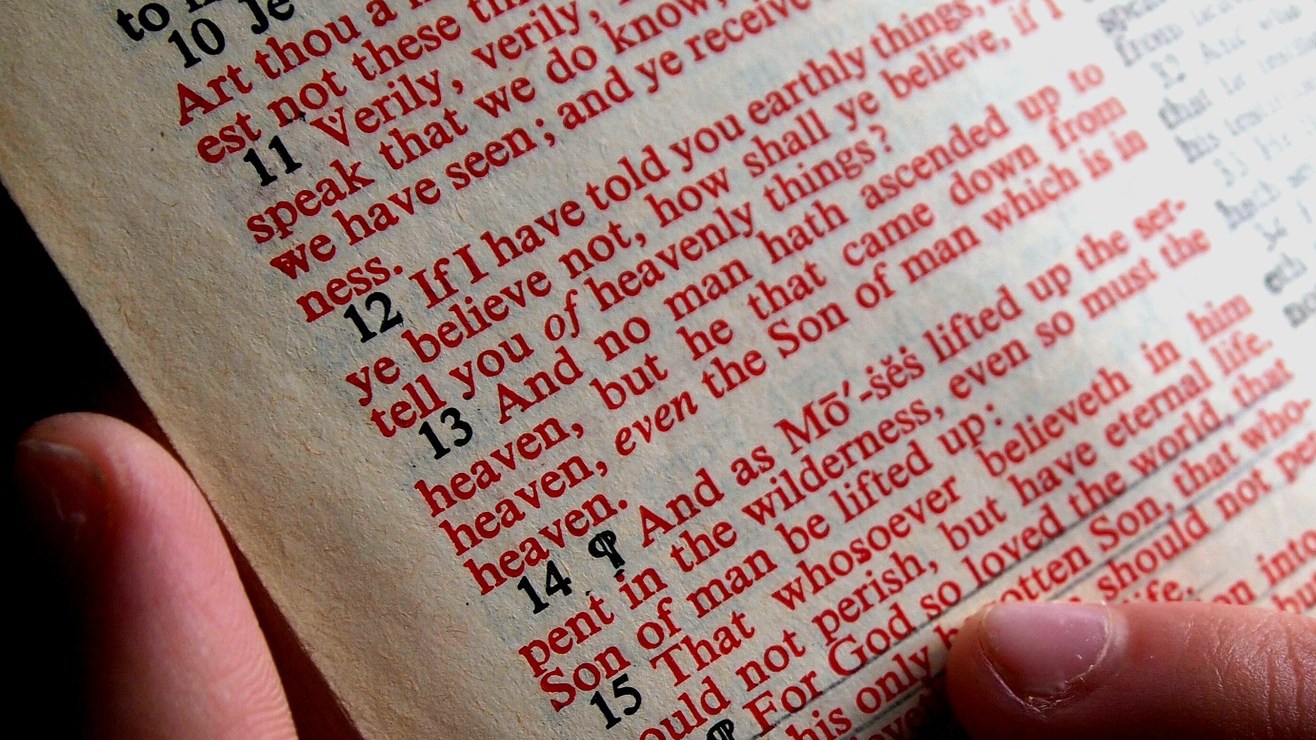 to
10 Je
Art thou a
est not these
11 Verily, verily,
speak that we do know,
we have seen; and ye receive
ness.
12 If I have told you earthly things,
ye believe not, how shall ye believe, if I
tell you of heavenly things?
13 And no man hath ascended up to
heaven, but he that came down from
heaven, even the Son of man which is in
heaven.
14 ¶ And as Mō′-ṡĕṡ lifted up the ser-
pent in the wilderness, even so must the
Son of man be lifted up:
15 That whosoever believeth in him
ould not perish, but have eternal life.
¶ For God so loved the world, that
his only b otten Son, that who-
should not pe
life.
on into